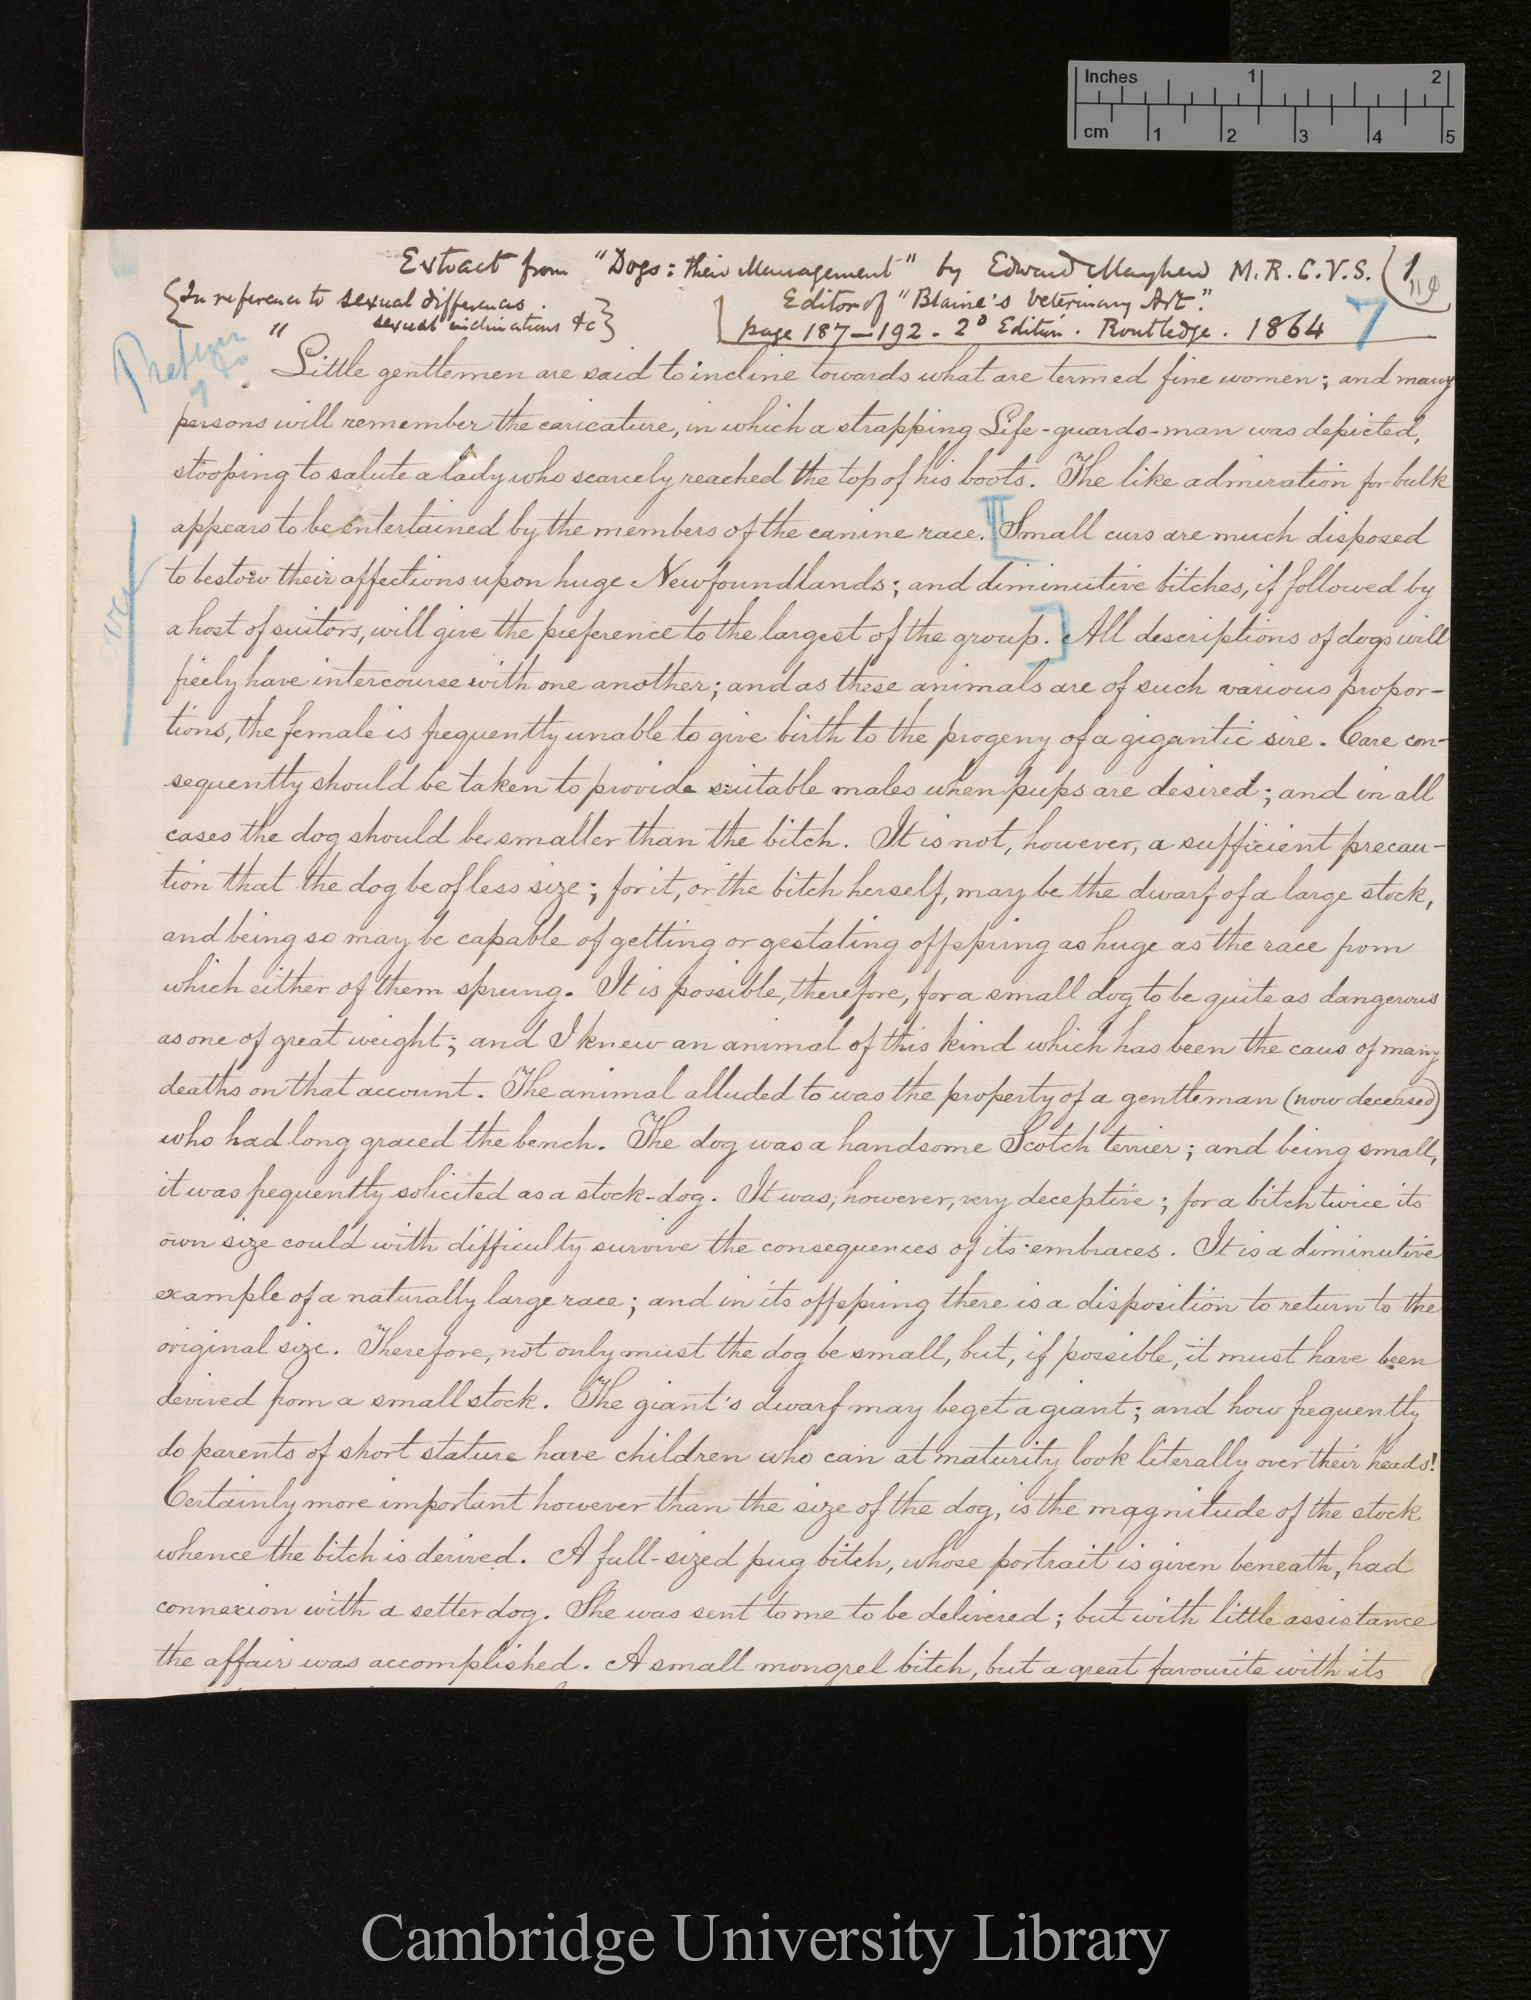 Inches 1 2
cm 1 2 3 4 5
Extract from "Dogs: their Management" by Edward Mayhew M.R.C.V.S. (1
{In reference to sexual differences.
sexual inclinations &c}
Editor of "Blaine's Veterinary Art."
page 187–192 - 2d Edition. Routledge. 1864
7
" Little gentlemen are said to incline towards what are termed fine women; and many
persons will remember the caricature, in which a strapping Life-guards-man was depicted,
stooping to salute a lady who scarcely reached the top of his boots. The like admiration for bulk
appears to be entertained by the members of the canine race. [Small curs are much disposed
to bestow their affections upon huge Newfoundlands; and diminutive bitches, if followed by
a host of suitors, will give the preference to the largest of the group.] All descriptions of dogs will
freely have intercourse with one another; and as these animals are of such various propor-
tions, the female is frequently unable to give birth to the progeny of a gigantic sire. Care con-
sequently should be taken to provide suitable males when pups are desired; and in all
cases the dog should be smaller than the bitch. It is not, however, a sufficient precau-
tion that the dog be of less size; for it, or the bitch herself, may be the dwarf of a large stock,
and being so may be capable of getting or gestating offspring as huge as the race from
which either of them sprung. It is possible, therefore, for a small dog to be quite as dangerous
as one of great weight; and I knew an animal of this kind which has been the caus of many
deaths on that account. The animal alluded to was the property of a gentleman (now deceased)
who had long graced the bench. The dog was a handsome Scotch terrier; and being small,
it was frequently solicited as a stock-dog. It was, however, very deceptive; for a bitch twice its
own size could with difficulty survive the consequences of its embraces. It is a diminutive
example of a naturally large race; and in its offspring there is a disposition to return to the
original size. Therefore, not only must the dog be small, but, if possible, it must have been
derived from a small stock. The giant's dwarf may beget a giant; and how frequently
do parents of short stature have children who can at maturity look literally over their heads!
Certainly more important however than the size of the dog, is the magnitude of the stock
whence the bitch is derived. A full-sized pug bitch, whose portrait is given beneath, had
connexion with a setter dog. She was sent to me to be delivered; but with little assistance
the affair was accomplished. A small mongrel bitch, but a great favourite with its
Cambridge University Library